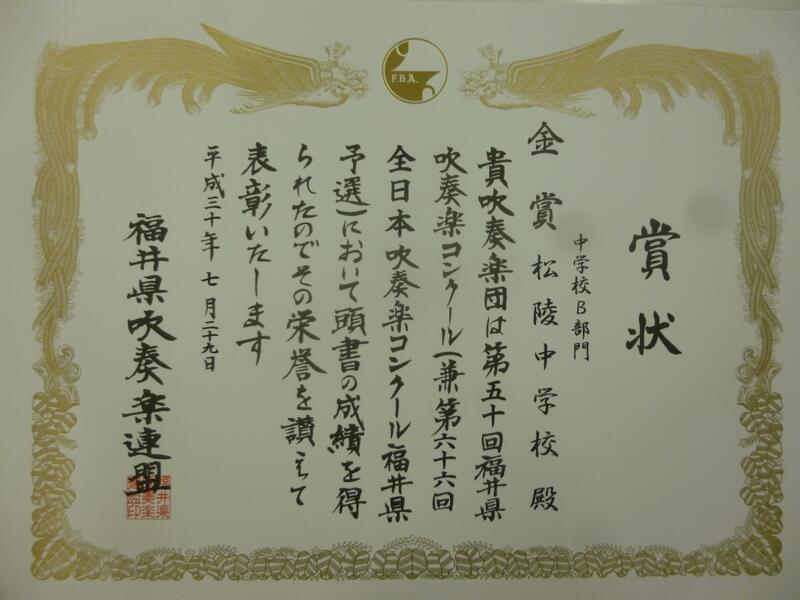 F.B.A.
賞状
中学校B部門
金賞 松陵中学校殿
貴吹奏楽団は第五十回福井県
吹奏楽コンクール(兼第六十六回
全日本吹奏楽コンクール福井県
予選)において頭書の成績を得
られたのでその栄誉を讃えて
表彰いたします
平成三十年七月二十九日
福井県吹奏楽連盟